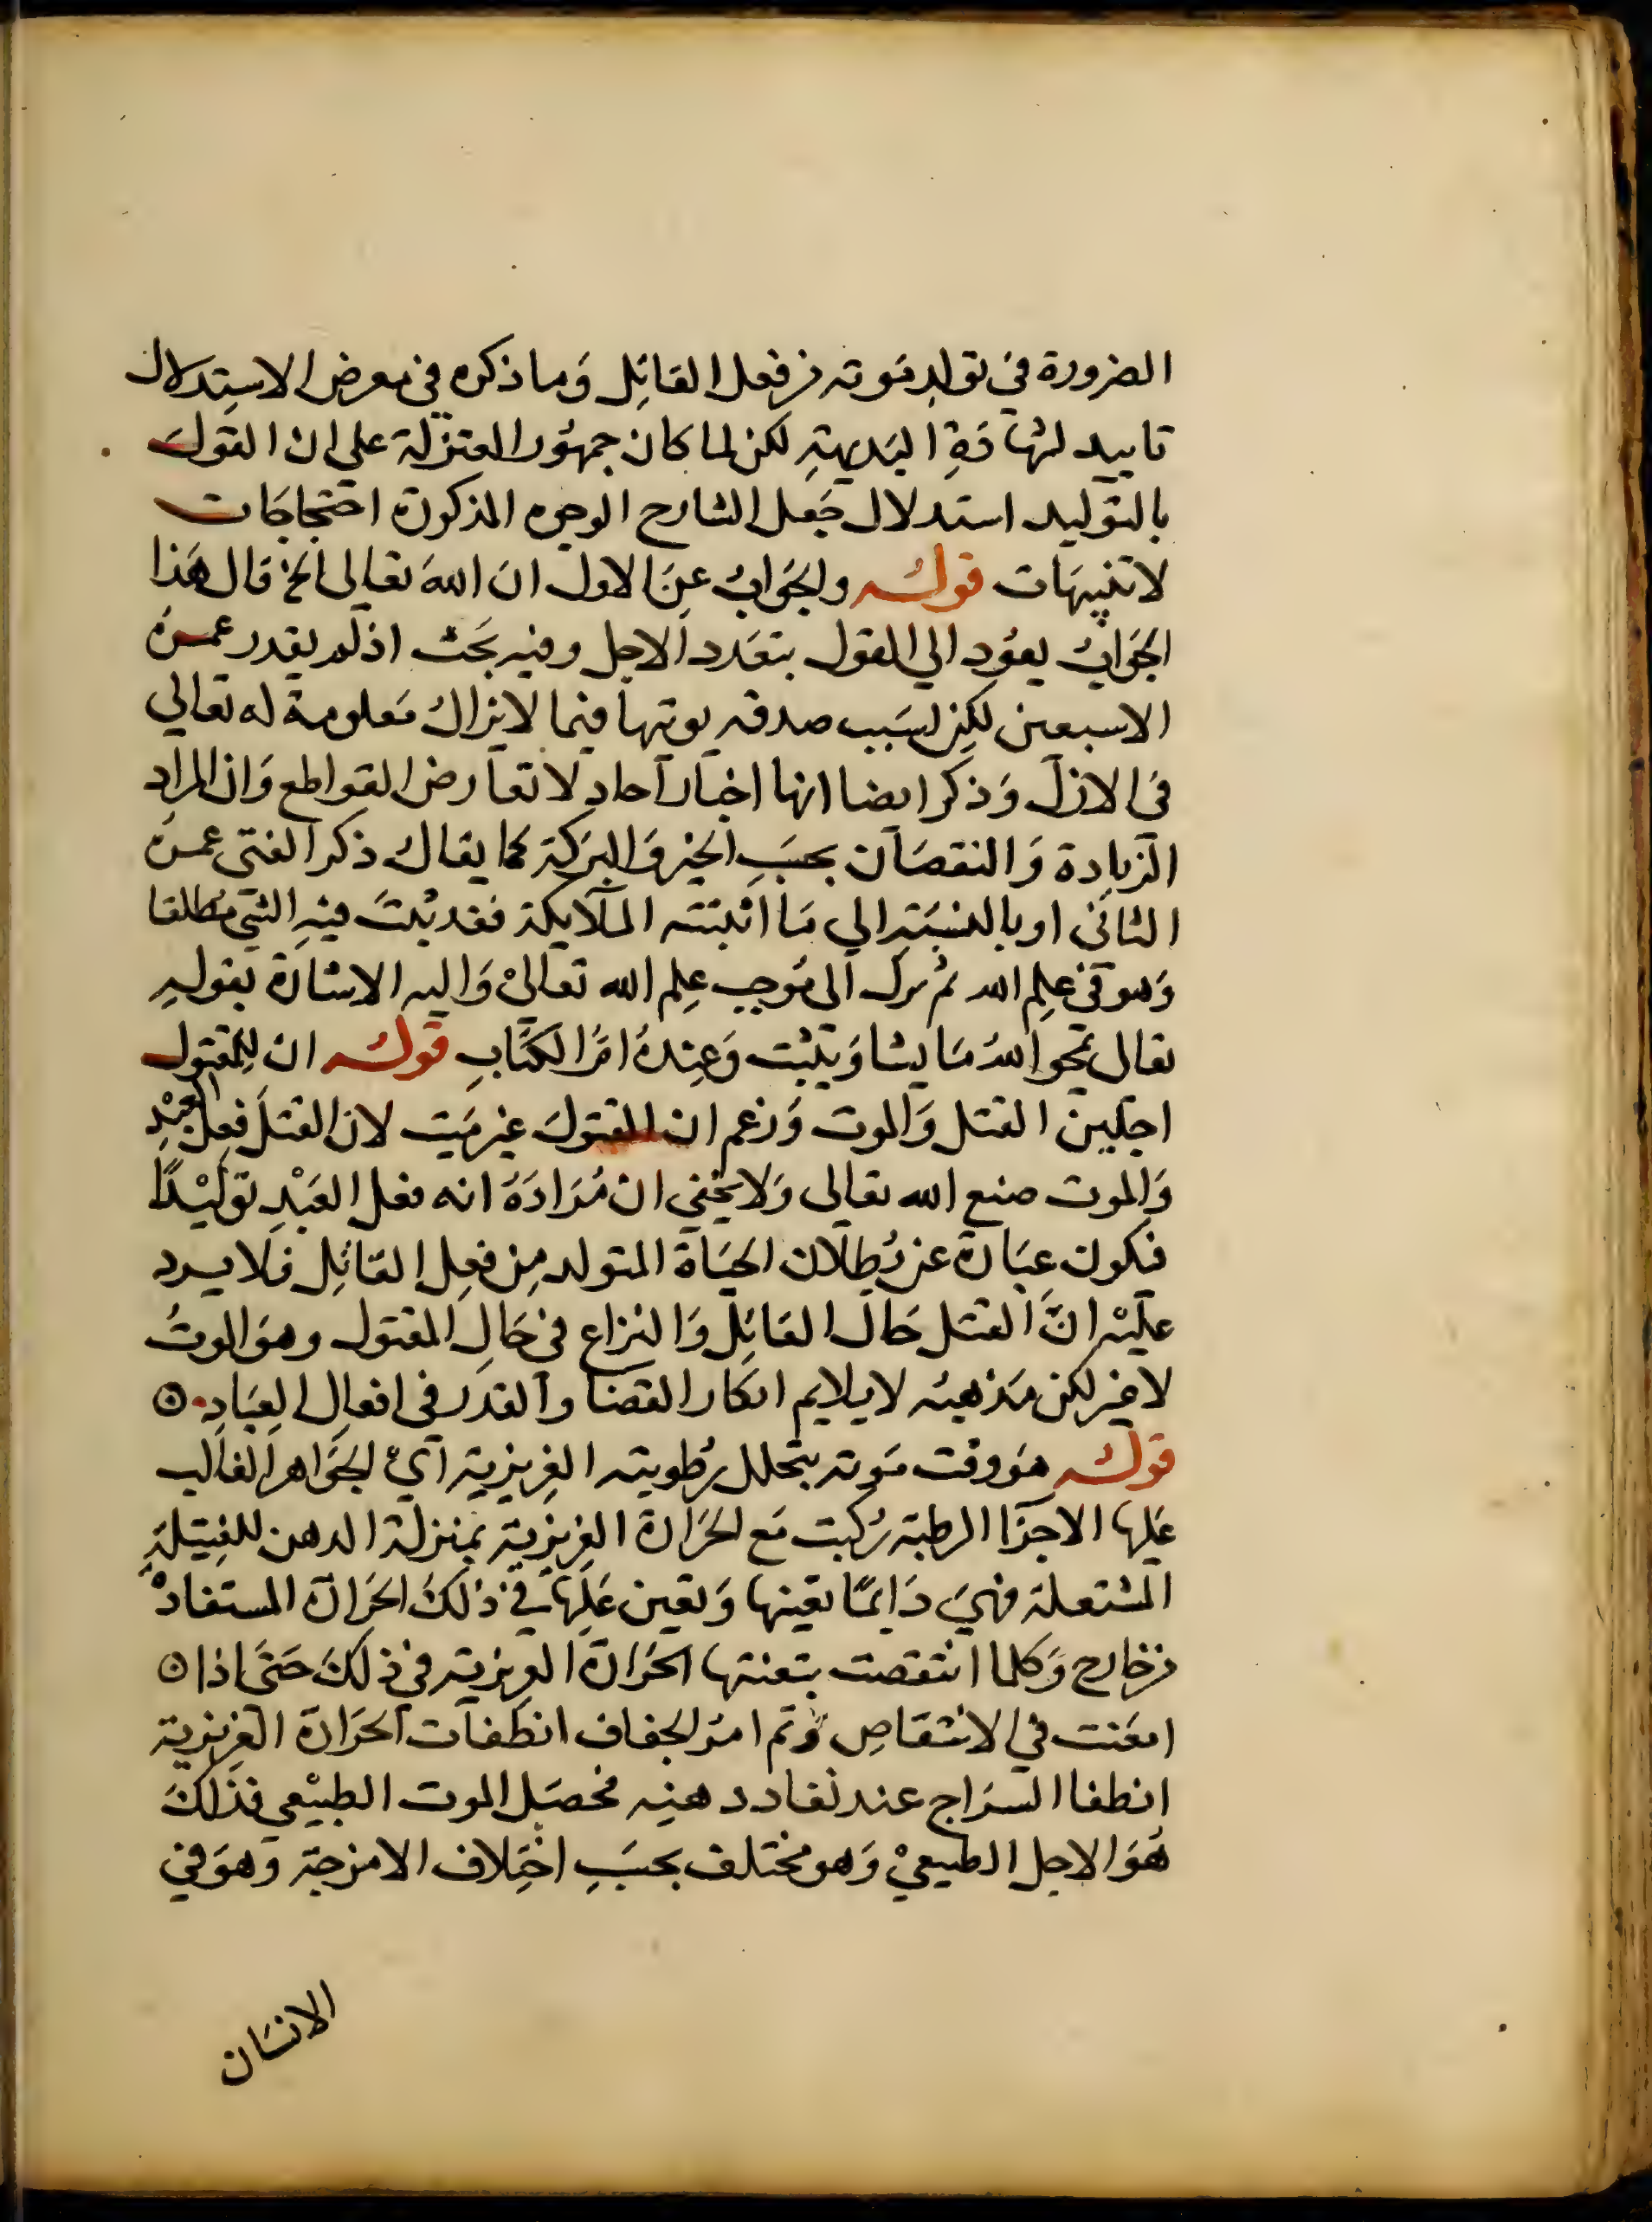 الضرورة في تولد موته من فعل القاتل وما ذكره في معرض الاستدلال
تاييد لشهادة البديهة لكن لما كان جمهور المعتزلة على ان القول
بالتوليد استدلال جعل الشارح الوجوه المذكورة احتجاجات
لا تنبيهات قوله والجواب عن الاول ان الله تعالى الخ قال هذا
الجواب يعود الي القول بتعدد الاجل وفيه بحث اذ لم يقدر عمره
الاسبعين لكن لسبب صدقه يوتها فيما لا يزال معلومة له تعالي
في الازل وذكر ايضا انها اخبار آحاد لا تعارض القواطع وان المراد
الزيادة والنقصان بحسب الخير والبركة كما يقال ذكر الفتى عمره
الثاني او بالنسبة الي ما اثبتته الملايكة فقد يثبت فيه الشي مطلقا
وهو في علم الله ثم يؤل الى موجب علم الله تعالى واليه الاشارة بقوله
تعالى يمحو الله ما يشا ويثبت وعنده ام الكتاب قوله ان للمقتول
اجلين القتل والموت وزعم ان المقتول غير ميت لان القتل فعل العبد
والموت صنع الله تعالى ولا يخفي ان مراده انه فعل العبد توليدا
فيكون عبارة عن بطلان الحياة المتولد من فعل القاتل فلا يرد
عليه ان القتل حال القاتل والنزاع في حال المقتول وهو الموت
لا غير لكن مذهبه لا يلايم انكار القضا والقدر في افعال العباد
قوله هو وقت موته بتحلل رطوبته الغريزية اي الجواهر الغالب
عليها الاجزا الرطبة ركبت مع الحرارة الغريزية بمنزلة الدهن للفتيلة
المشتعلة فهي دايما تعينها وتعين عليها في ذلك الحرارة المستفادة
من خارج وكلما انتقصت تبعتها الحرارة الغريزية في ذلك حتى اذا
امعنت في الانتقاص وتم امر الجفاف انطفات الحرارة الغريزية
انطفا السراج عند نفاد دهنه فحصل الموت الطبيعي فذلك
هو الاجل الطبيعي وهو مختلف بحسب اختلاف الامزجة وهو في
الانسان